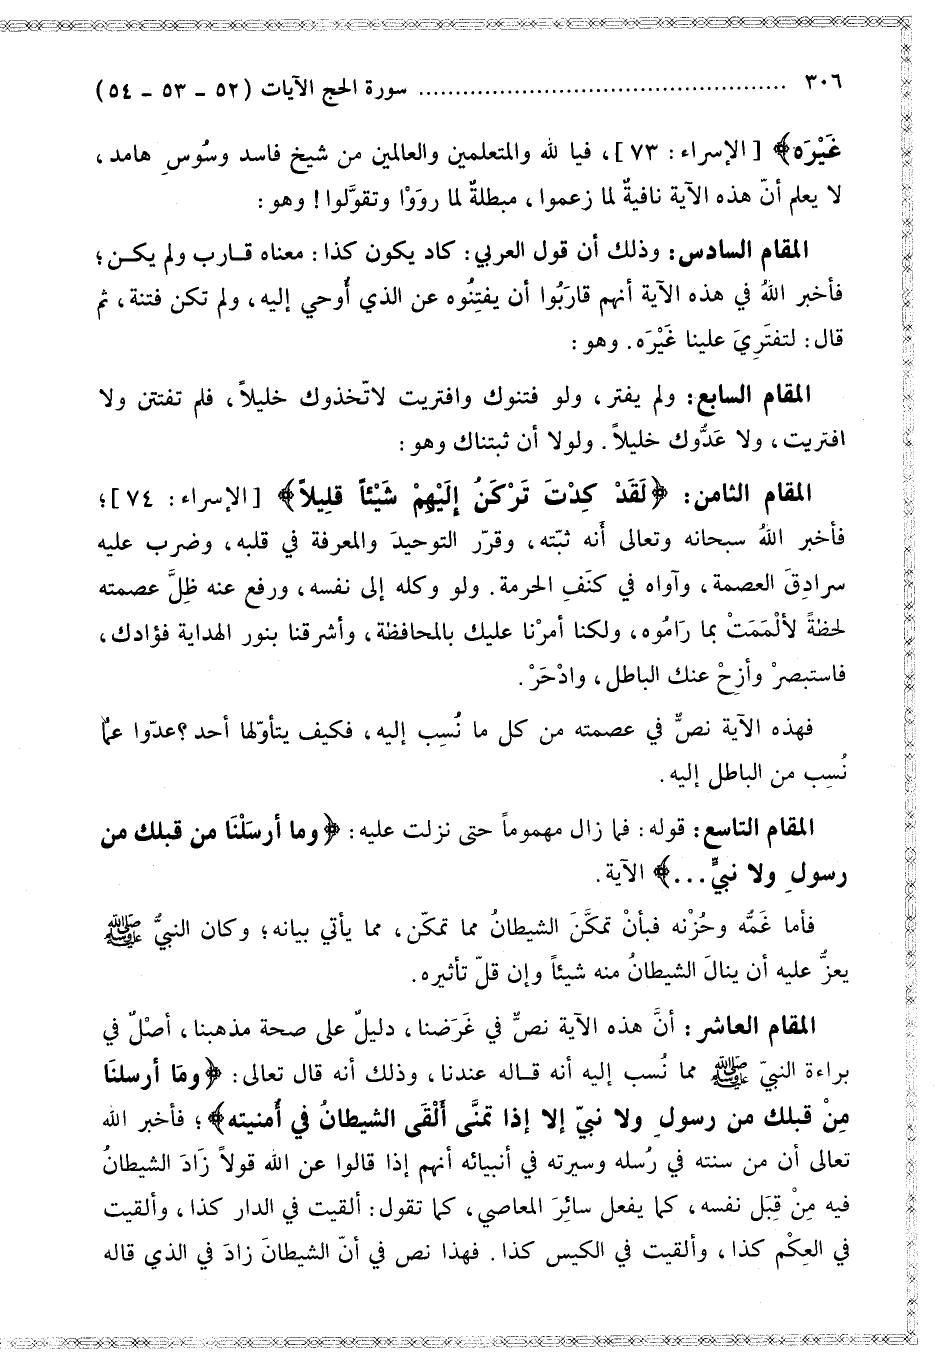 ٣٠٦ ................................................ سورة الحج الآيات (٥٢ - ٥٣ - ٥٤)
غَيْرَه﴾ [الإسراء: ٧٣]، فيا لله والمتعلمين والعالمين من شيخ فاسد وسُوسٍ هامد،
لا يعلم أنّ هذه الآية نافيةٌ لما زعموا، مبطلةٌ لما رووْا وتقوَّلوا! وهو:
المقام السادس: وذلك أن قول العربي: كاد يكون كذا: معناه قارب ولم يكن؛
فأخبر اللهُ في هذه الآية أنهم قارَبُوا أن يفتِنُوه عن الذي أُوحي إليه، ولم تكن فتنة، ثم
قال: لتفتَرِيَ علينا غَيْرَه. وهو:
المقام السابع: ولم يفتر، ولو فتنوك وافتريت لاتّخذوك خليلاً، فلم تفتتن ولا
افتريت، ولا عَدُّوك خليلاً. ولولا أن ثبتناك وهو:
المقام الثامن: ﴿لَقَدْ كِدْتَ تَرْكَنُ إِلَيْهِمْ شَيْئاً قليلاً﴾ [الإسراء: ٧٤]؛
فأخبر اللهُ سبحانه وتعالى أنه ثبّته، وقرّر التوحيدَ والمعرفة في قلبه، وضرب عليه
سرادِقَ العصمة، وآواه في كنَفِ الحرمة. ولو وكله إلى نفسه، ورفع عنه ظِلَّ عصمته
لحظةً لألْمَمَتْ بما رَامُوه، ولكنا أمرْنا عليك بالمحافظة، وأشرقنا بنور الهداية فؤادك،
فاستبصرْ وأزِحْ عنك الباطل، وادْحَرْ.
فهذه الآية نصٌّ في عصمته من كل ما نُسِب إليه، فكيف يتأوّلها أحد؟ عدّوا عمّا
نُسِب من الباطل إليه.
المقام التاسع: قوله: فما زال مهموماً حتى نزلت عليه: ﴿وما أرسَلْنَا من قبلك من
رسولٍ ولا نبيٍّ...﴾ الآية.
فأما غَمُّه وحُزْنه فبأنْ تمكَّنَ الشيطانُ مما تمكّن، مما يأتي بيانه؛ وكان النبيُّ ﷺ
يعزُّ عليه أن ينالَ الشيطانُ منه شيئاً وإن قلّ تأثيره.
المقام العاشر: أنَّ هذه الآية نصٌّ في غَرَضنا، دليلٌ على صحة مذهبنا، أصْلٌ في
براءة النبيّ ﷺ مما نُسب إليه أنه قاله عندنا، وذلك أنه قال تعالى: ﴿ومَا أرسلنَا
مِنْ قبلك من رسولٍ ولا نبيّ إلا إذا تمنَّى أَلْقَى الشيطانُ في أُمنيته﴾؛ فأخبر الله
تعالى أن من سنته في رُسله وسيرته في أنبيائه أنهم إذا قالوا عن الله قولاً زَادَ الشيطانُ
فيه مِنْ قِبَل نفسه، كما يفعل سائِرَ المعاصي، كما تقول: ألقيت في الدار كذا، وألقيت
في العِكْم كذا، وألقيت في الكيس كذا. فهذا نص في أنّ الشيطانَ زادَ في الذي قاله